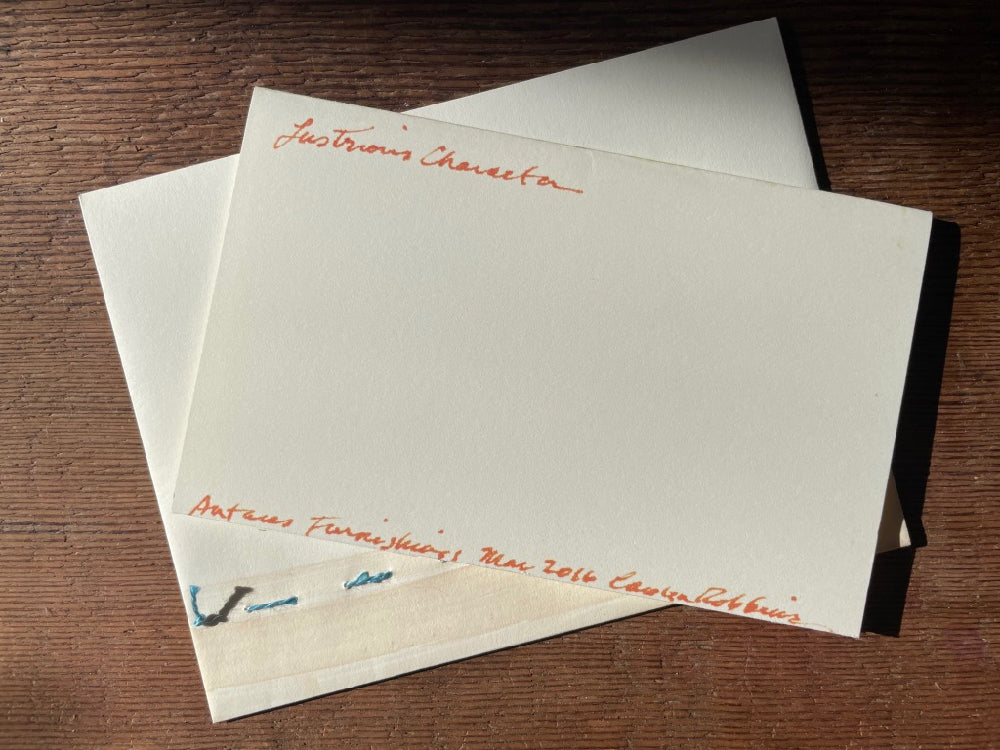 Lustrious Character
Antaeus Furnishings Mar 2016 Carolyn Robbins